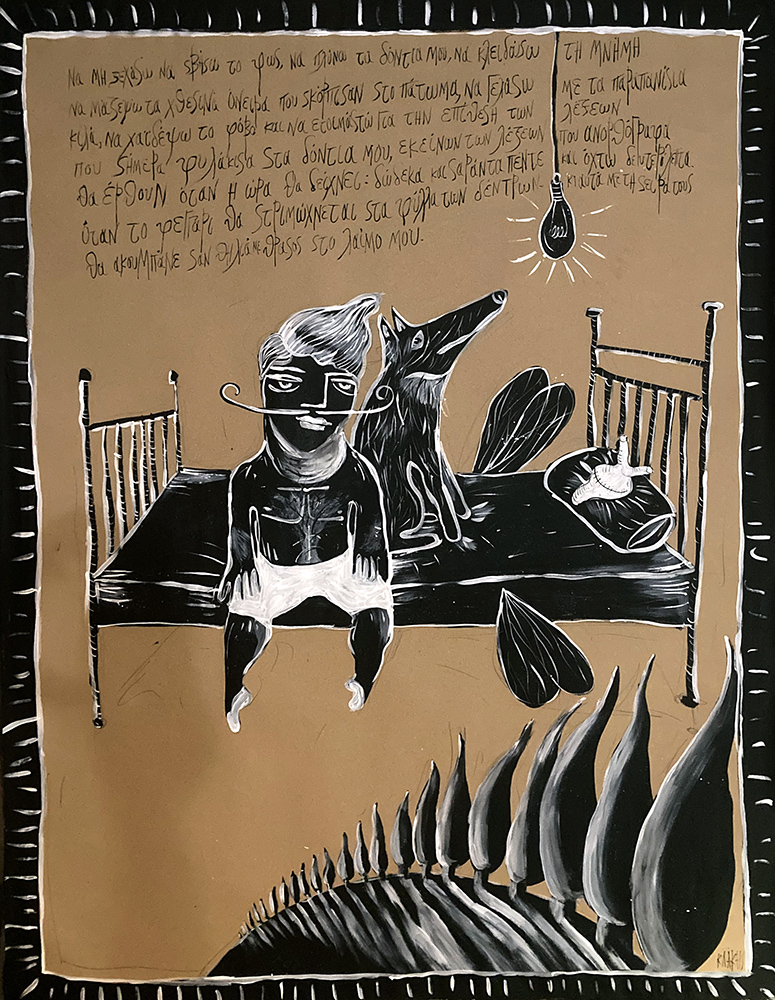 Να μη ξεχάσω να σβήσω το φως, να πλύνω τα δόντια μου, να κλειδώσω τη μνήμη
να μαζέψω τα χθεσινά όνειρα που σκόρπισαν στο πάτωμα, να γελάσω με τα παραπανίσια
κιλά, να χαϊδέψω το φόβο και να ετοιμαστώ για την επίθεση των λέξεων
που σήμερα φυλάκισα στα δόντια μου, εκείνων των λέξεων που ανορθόγραφα
θα έρθουν όταν η ώρα θα δείχνει: δώδεκα και σαράντα πέντε και οχτώ δευτερόλεπτα.
όταν το φεγγάρι θα στριμώχνεται στα φύλλα των δέντρων - κι αυτά με τη σειρά τους
θα ακουμπάνε σαν θηλιά με θράσος στο λαιμό μου.